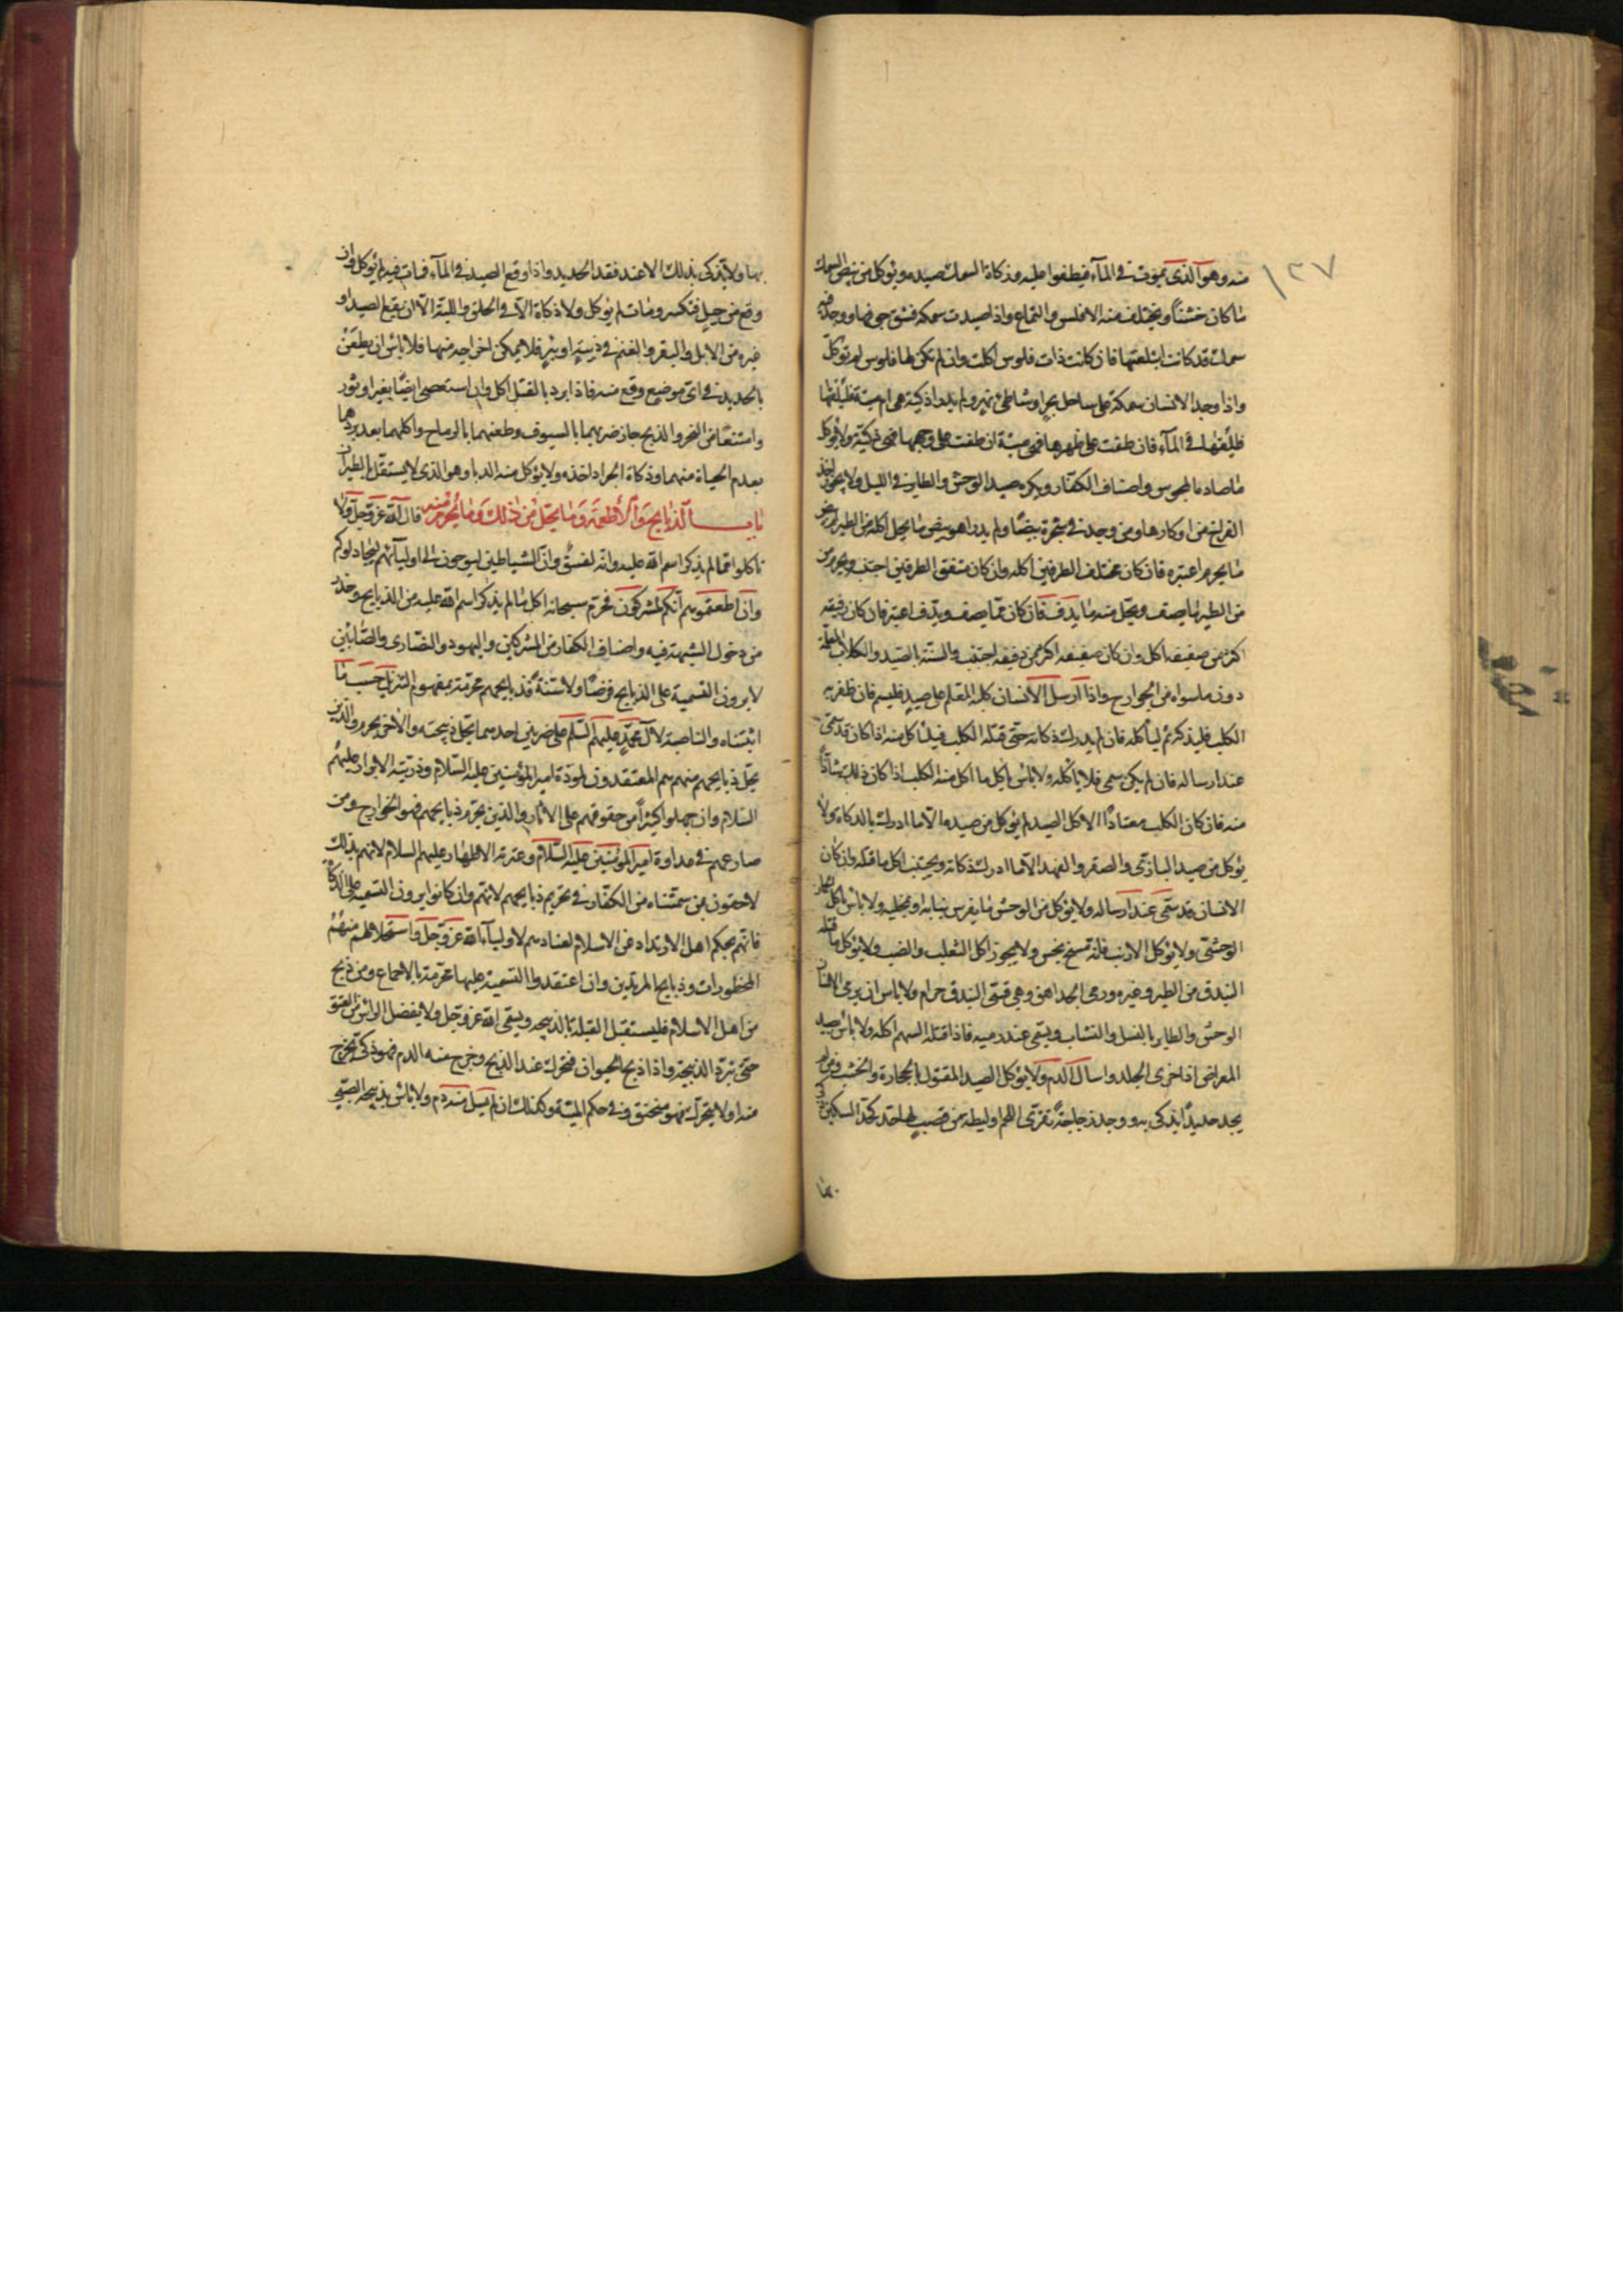 ١٣٧
منه وهو الذى يموت فى المآء فيطفوا عليه وذكاة السمك صيده ويؤكل من بيض السمك
ما كان خشناً ويجتنب منه الاملس والنماع واذا صيدت سمكة فشق جوفها ووجد فيه
سمك قد كانت ابتلعتها فان كانت ذات فلوس اكلت وان لم تكن لها فلوس لم تؤكل
واذا وجد الانسان سمكة على ساحل بحر او شاطئ نهر ولم يعلم اذكية هى ام ميتة
فليلقها فى المآء فان طفت على ظهرها فهى ميتة ان طفت على وجهها فهى ذكية ولا يؤكل
ما صاده المجوس واصناف الكفار ويكره صيد الوحش والطاير فى الليل ولا يجوز اخذ
الفراخ من اوكارها ومن وجد فى شجرة بيضاً ولم يدر اهو بيض ما يحل اكله من الطير ام بيض
ما يحرم اعتبره فان كان مختلف الطرفين اكله وان كان متفق الطرفين اجتنبه ويحرم من
من الطير ما يصف ويحل منه ما يدف فان كان مما يصف ويدف اعتبر فان كان دفيفه
اكثر من صفيفه اكل وان كان صفيفه اكثر من دفيفه اجتنب والسنة بالصيد والكلاب المعلمة
دون ما سواه من الجوارح واذا ارسل الانسان كلبه المعلم على صيد فليسم فان ظفر به
الكلب فليذكه ثم لياكله فان لم يدرك ذكاته حتى قتله الكلب فلياكل منه اذا كان قد سمى
عند ارساله فان لم يكن سمى فلا ياكله ولا باس باكل ما اكل منه الكلب اذا كان ذلك شاذاً
منه فان كان الكلب معتاداً لاكل الصيد لم يؤكل من صيده الا ما ادرك بالذكاة ولا
يؤكل من صيد البازى والصقر والفهد الا ما ادرك ذكاته ويجتنب اكل ما قتله وان كان
الانسان قد سمى عند ارساله ولا يؤكل من الوحش ما يفرس بنابه او مخلبه ولا باس باكل الحمار
الوحشى ولا يؤكل الارنب فانه مسخ نجس ولا يجوز اكل الثعلب والضب ولا يؤكل ما قتله
البندق من الطير وغيره ورمى الجلاهق وهى قسى البندق حرام ولا باس ان يرمى الانسان
الوحش والطاير بالنبل والنشاب ويسمى عند رميه فاذا قتله السهم اكله ولا باس بصيد
المعراض اذا خرق الجلد واسال الدم ولا يؤكل الصيد المقتول بالحجارة والخشب ومن لم
يجد حديداً يذكى به ووجد زجاجة تفرى اللحم او ليطة من قصب لها حد كحد السكين
بها ولا يذكى بذلك الا عند فقد الحديد واذا وقع الصيد فى المآء فمات فيه لم يؤكل وان
وقع من جبل فتكسر ومات لم يؤكل ولا ذكاة الا فى الحلق واللبة الا ان يقع الصيد او
غيره من الابل والبقر والغنم فى زبية او بئر فلا يمكن اخراجه منها فلا باس ان يطعن
بالحديد فى اى موضع وقع منه فاذا برد بالقتل اكل وان استعصى ايضاً بعير او ثور
وامتنعا من النحر والذبح جاز ضربهما بالسيوف وطعنهما بالرماح واكلهما بعد بردهما
بعدم الحياة منهما وذكاة الجراد اخذه ولا يؤكل منه الدبا وهو الذى لا يستقل بالطيران
باب الذبايح والاطعمة وما يحل من ذلك وما يحرم منه قال الله عز وجل ولا
تاكلوا مما لم يذكر اسم الله عليه وانه لفسق وان الشياطين ليوحون الى اوليآئهم ليجادلوكم
وان اطعتموهم انكم لمشركون فحرم سبحانه اكل ما لم يذكر اسم الله عليه من الذبايح وحذر
من دخول الشبهة فيه واصناف الكفار من المشركين واليهود والنصارى والصابئين
لا يرون التسمية على الذبايح فرضاً ولا سنة فذبايحهم محرمة بمفهوم التنزيل حسب ما
اثبتناه والناصبة لآل محمد عليهم السلم على ضربين احدهما يحل ذبيحته والآخر يحرم والذين
يحل ذبايحهم منهم هم المعتقدون لمودة امير المؤمنين عليه السلام وذريته الابرار عليهم
السلام وان جهلوا كثيراً من حقوقهم على الآثار والذين يحرم ذبايحهم فهم الخوارج ومن
ضارعهم فى عداوة امير المؤمنين عليه السلام وعترته الاطهار عليهم السلام لانهم بذلك
لاحقون بمن سميناه من الكفار فى تحريم ذبايحهم لانهم وان كانوا يرون التسمية على الذكاة
فانهم بحكم اهل الارتداد عن الاسلام لعنادهم لاوليآء الله عز وجل واستحلالهم منهم
المحظورات وذبايح المرتدين وان اعتقدوا التسمية عليها محرمة بالاجماع ومن ذبح
من اهل الاسلام فليستقبل القبلة بالذبيحة ويسمى الله عز وجل ولا يفصل الراس من العنق
حتى تبرد الذبيحة واذا ذبح الحيوان فتحرك عند الذبح وخرج منه الدم فهو ذكى وان لم يخرج
منه اولا يتحرك فهو منخنق وفى حكم الميتة وكذلك ان لم يسل منه دم ولا باس بذبيحة الصبى
بها